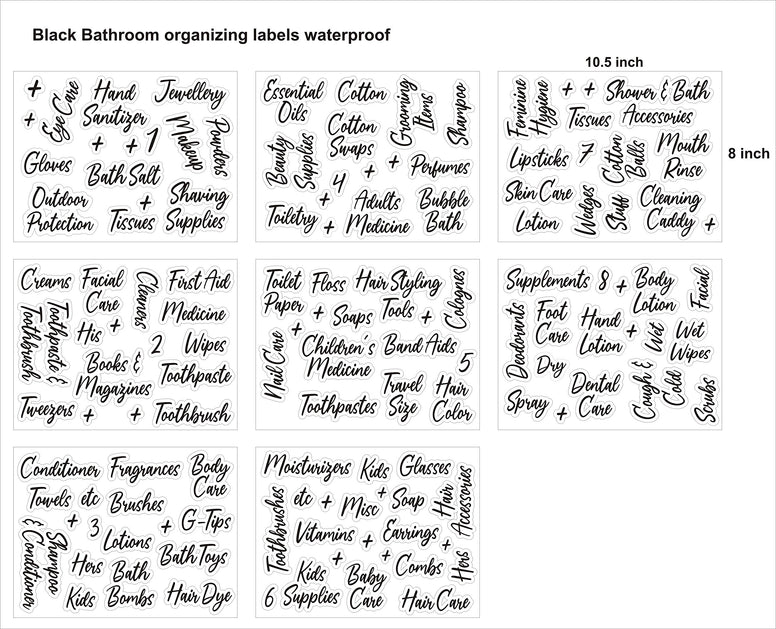 Black Bathroom organizing labels waterproof
10.5 inch
8 inch
+
Eye Care
Hand
Sanitizer
Jewellery
+
+
+
1
Makeup
Powders
Gloves
Bath Salt
Outdoor
Protection
+
Tissues
Shaving
Supplies
Essential
Oils
Cotton
Grooming
Items
Shampoo
Cotton
Swaps
Beauty
Supplies
+
+
Perfumes
4
+
Toiletry
+
Adults
Medicine
Bubble
Bath
Feminine
Hygiene
+
+
Shower & Bath
Accessories
Tissues
Lipsticks
7
Cotton
Balls
Mouth
Rinse
Skin Care
Lotion
Wedges
Stuff
Cleaning
Caddy
+
Creams
Facial
Care
Cleaners
First Aid
Toothbrush
Toothpaste &
His
+
Medicine
2
Wipes
Books &
Magazines
Toothpaste
Tweezers
+
+
Toothbrush
Toilet
Paper
Floss
Hair Styling
Tools
Colognes
+
Soaps
+
+
Nail Care
Children's
Medicine
Band Aids
5
Toothpastes
Travel
Size
Hair
Color
Supplements
8
+
Body
Lotion
Facial
Deodorants
Foot
Care
Hand
Lotion
+
Wet
Wet
Wipes
Dry
Spray
+
Dental
Care
Cough &
Cold
Scrubs
Conditioner
Fragrances
Body
Care
Towels
etc
Brushes
+
3
+
G-Tips
Shampoo
& Conditioner
Lotions
Hers
Bath
Bombs
Bath Toys
Kids
Hair Dye
Moisturizers
Kids
Glasses
Toothbrushes
etc
+
Misc
+
Soap
Hair
Accessories
Vitamins
+
Earrings
+
Kids
Supplies
+
Baby
Care
+
Combs
Hers
6
Hair Care